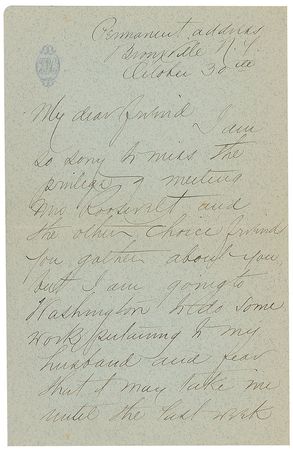 Permanent address
Bronxville N.Y.
October 30th
My dear friend
I am
so sorry to miss the
privilege of meeting
Mrs. Roosevelt and
the other choice friends
you gather about you
but I am going to
Washington to do some
work pertaining to my
husband and fear
that it may take me
until the last week